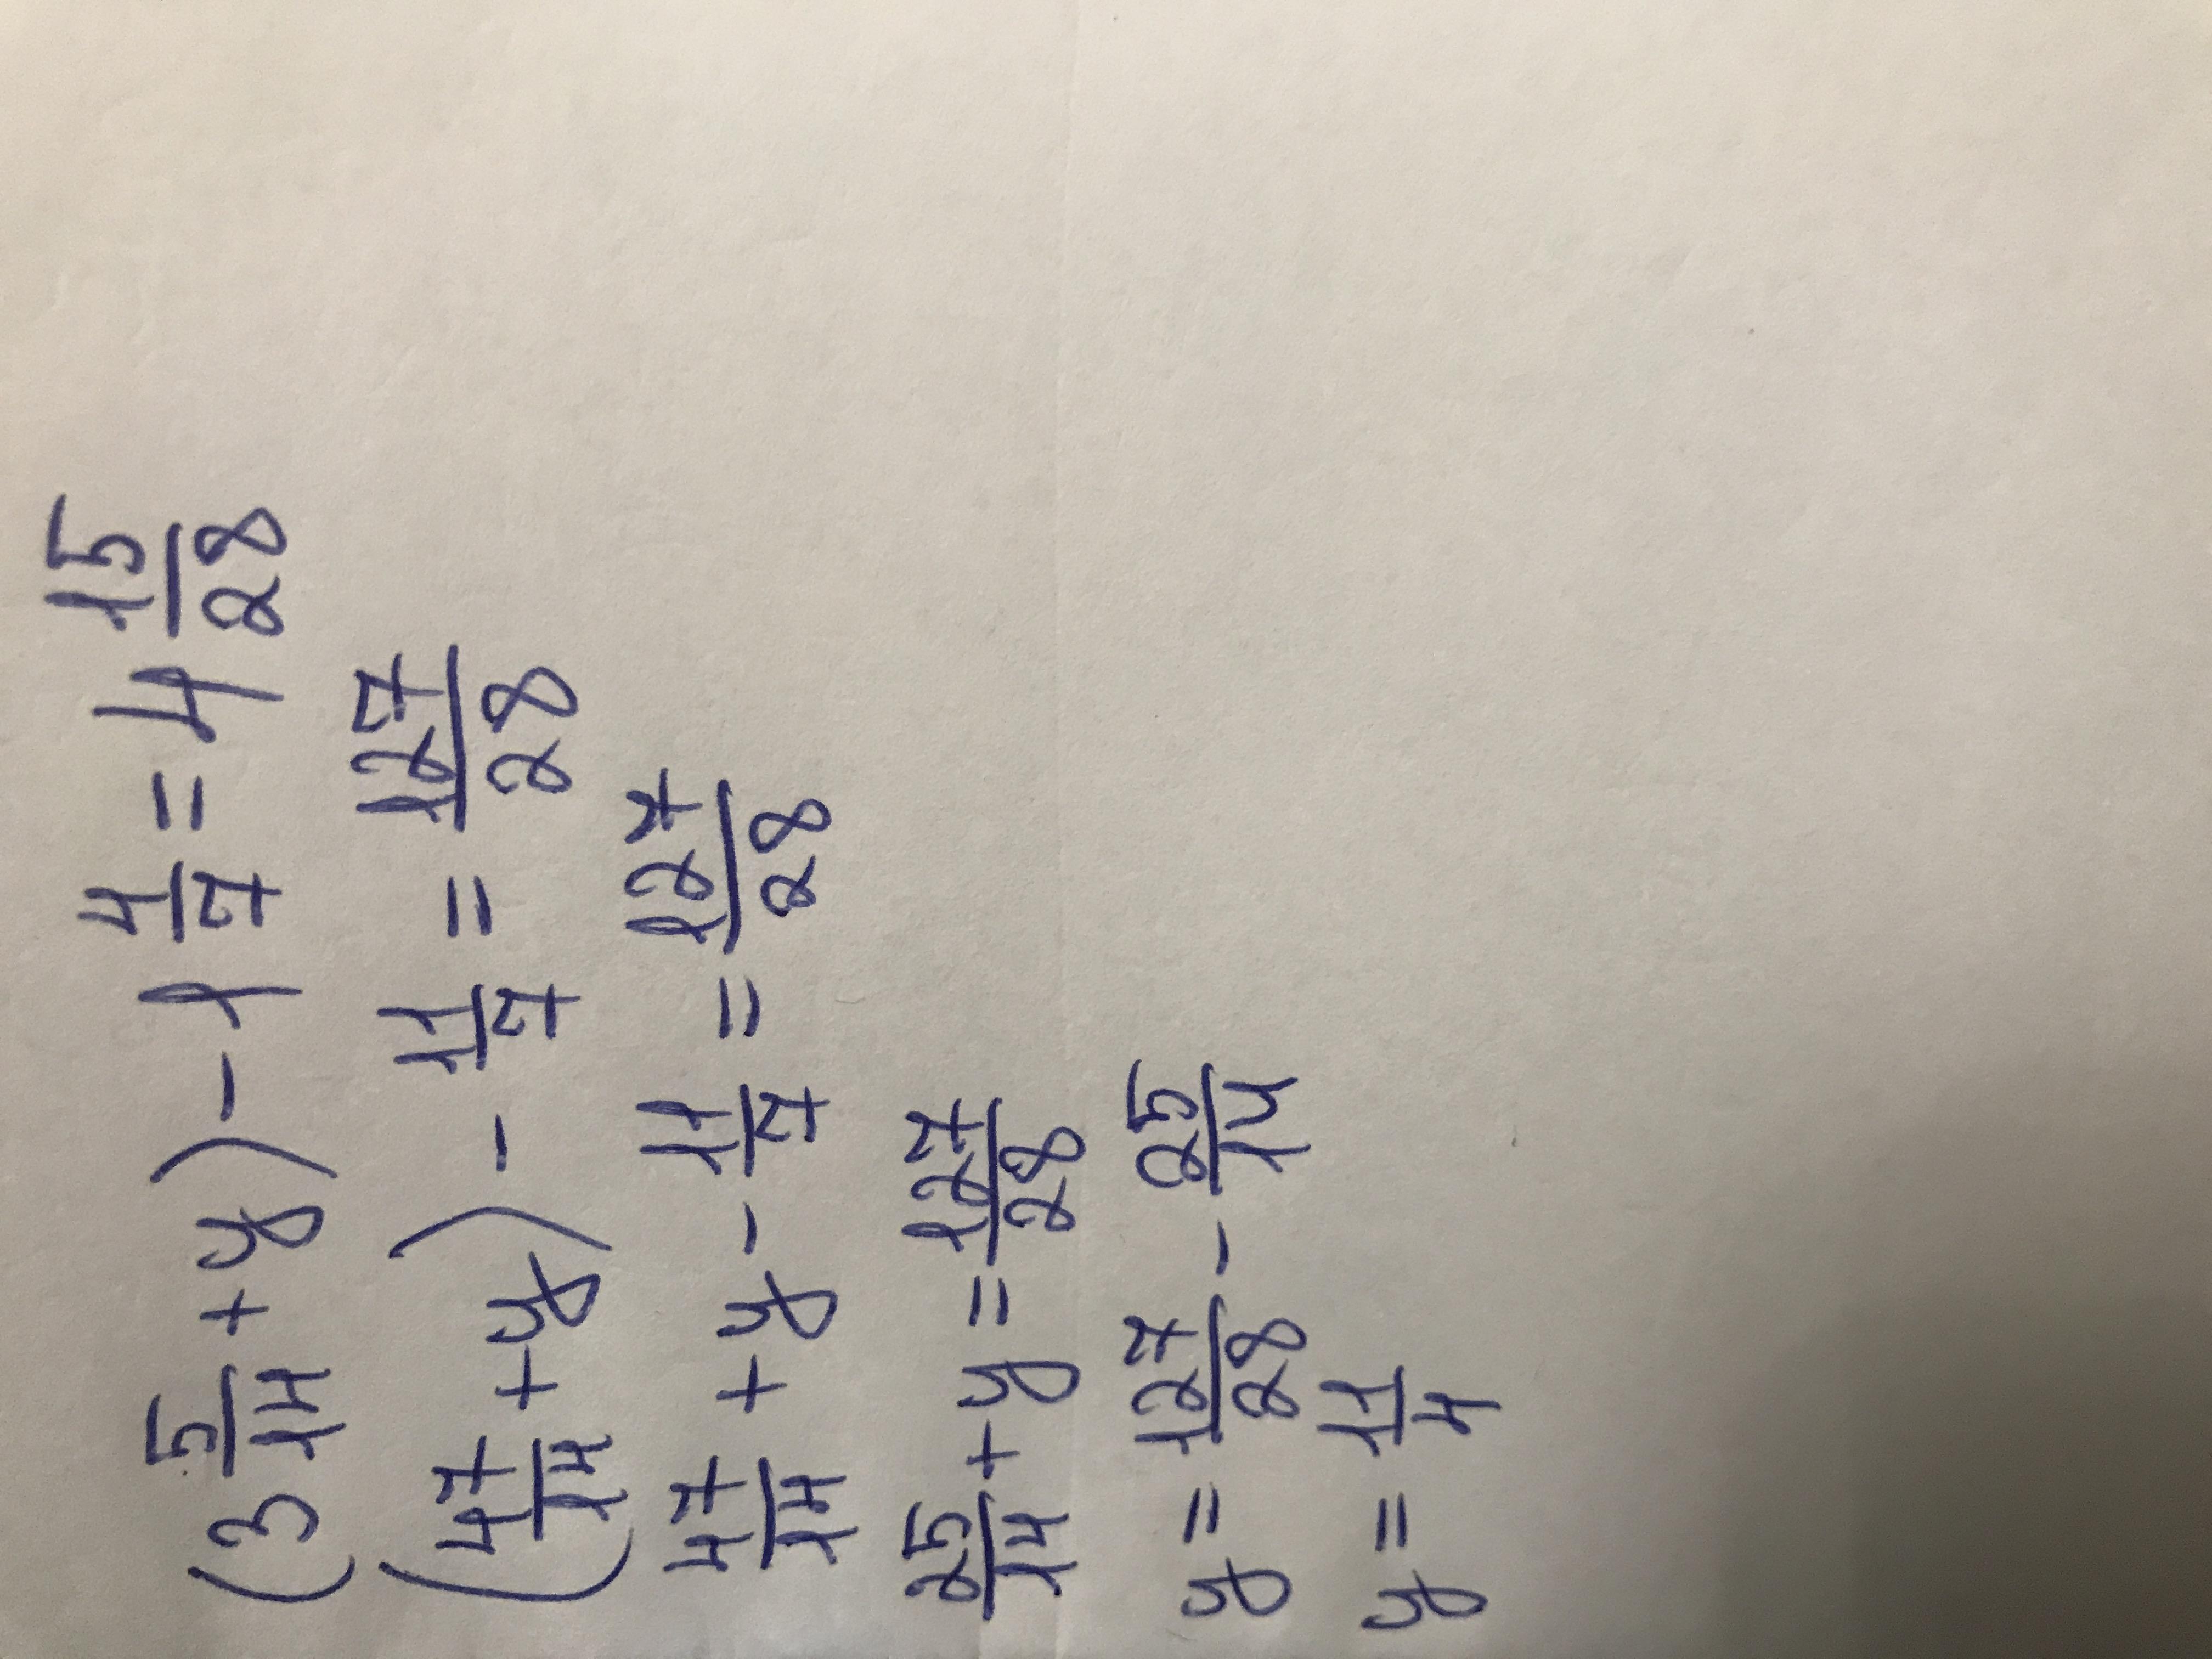 (3 5/14 + y) - 1 4/7 = 4 15/28
(47/14 + y) - 11/7 = 127/28
47/14 + y - 11/7 = 127/28
25/14 + y = 127/28
y = 127/28 - 25/14
y = 11/4